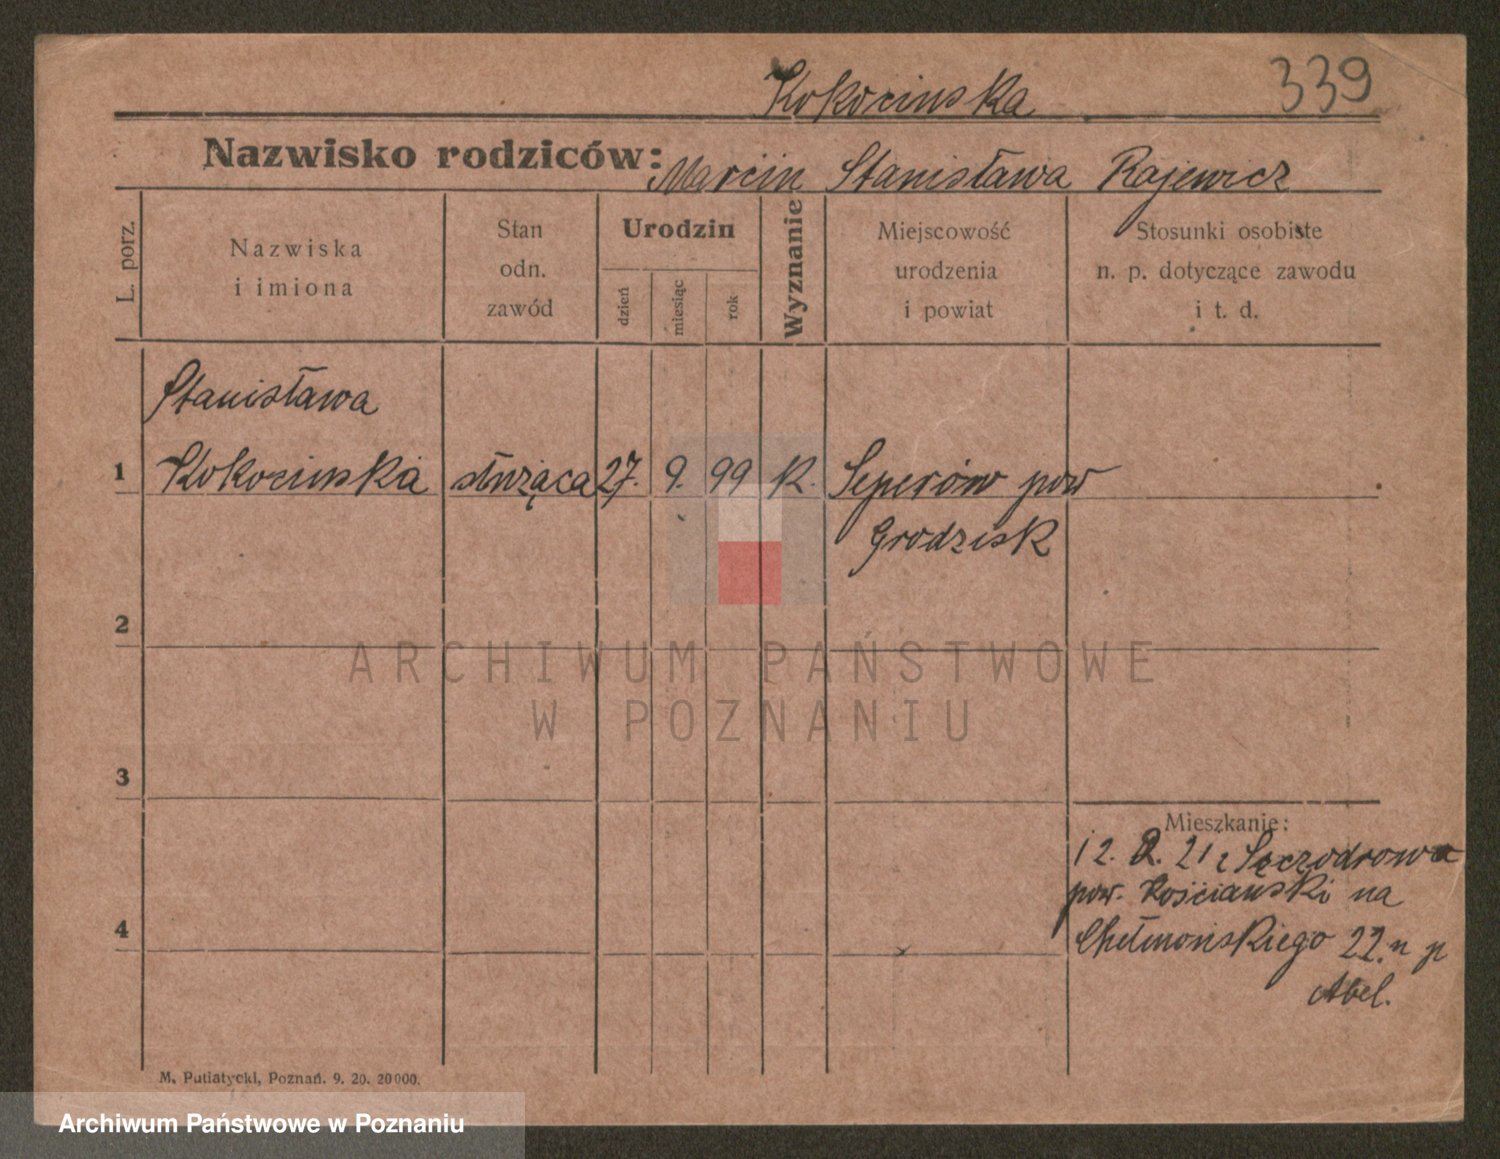 Kokocinska 339
Nazwisko rodziców: Marcin Stanisława Rajewicz
L. porz.
Nazwiska
i imiona
Stan
odn.
zawód
Urodzin
dzień
miesiąc
rok
Wyznanie
Miejscowość
urodzenia
i powiat
Stosunki osobiste
n. p. dotyczące zawodu
i t. d.
Stanisława
1 Kokocinska służąca 27. 9. 99 K. Separowo pow
Grodzisk
2
ARCHIWUM PAŃSTWOWE
W POZNANIU
3
Mieszkanie:
12. 2. 21 z
pow. Kościanski na
4
Chełmońskiego 22. n p
Abel.
M. Putiatycki, Poznań. 9. 20. 20000.
Archiwum Państwowe w Poznaniu